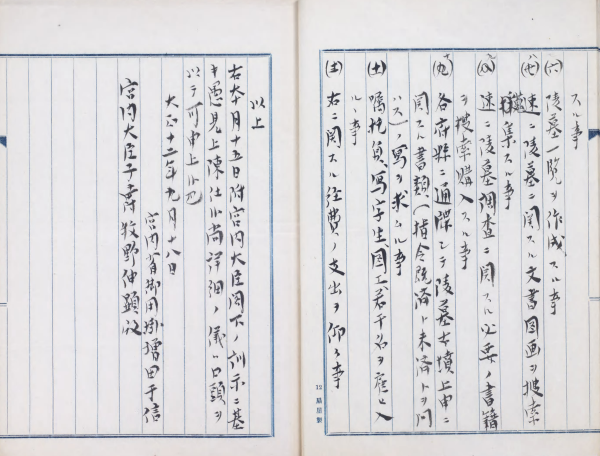 スル事
(六) 陵墓一覧ヲ作成スル事
(七) 速ニ陵墓ニ関スル文書図画ヲ捜索
集スル事
(八) 速ニ陵墓調査ニ関スル必要ノ書籍
ヲ捜索購入スル事
(九) 各府県ニ通牒シテ陵墓古墳上申ニ
関スル書類(指令既済ト未済トヲ問
ハズ)ノ写ヲ求ムル事
(十) 嘱托員、写字生図工若干名ヲ雇入
ルヽ事
(十一) 右ニ関スル経費ノ支出ヲ仰ク事
以上
右本月十五日附宮内大臣閣下ノ訓示ニ基
キ愚見上陳仕候尚詳細ノ儀ハ口頭ヲ
以テ可申上候也
大正十二年九月十八日
宮内省御用掛増田于信
宮内大臣子爵牧野伸顕殿